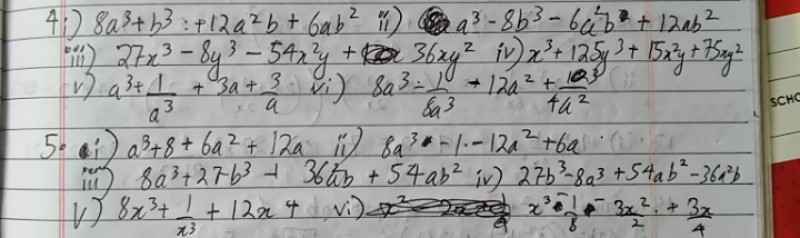 4 i) 8a³+b³ + 12a²b + 6ab² ii) a³-8b³-6a²b + 12ab²
iii) 27x³-8y³-54x²y + 36xy² iv) x³+125y³+15x²y+75xy²
v) a³+1/a³ + 3a+3/a vi) 8a³-1/8a³ 12a² + /4a²
5. i) a³+8+6a²+12a ii) 8a³-1-12a²+6a
iii) 8a³+27b³ + 36ab + 54ab² iv) 27b³-8a³+54ab²-36a²b
v) 8x³+1/x³ + 12x vi) x³-1/8 - 3x²/2 + 3x/4
SCHO